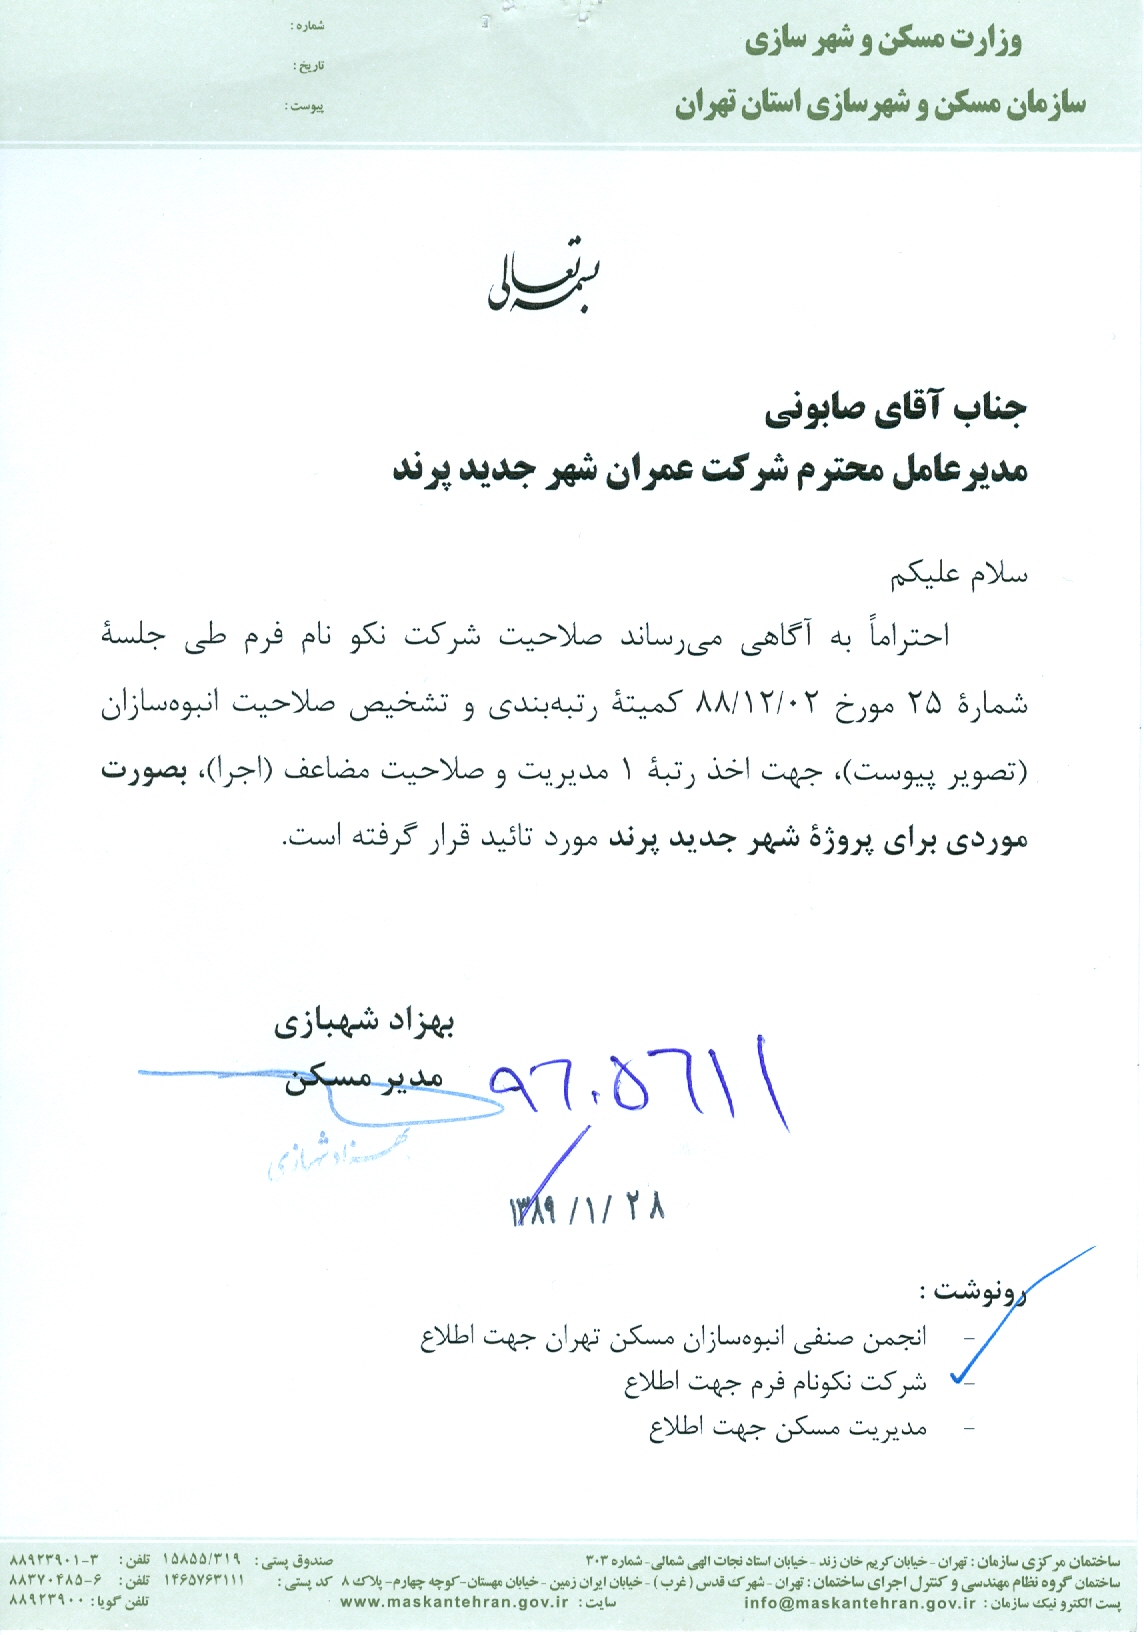 وزارت مسکن و شهر سازی
سازمان مسکن و شهرسازی استان تهران
شماره :
تاریخ :
پیوست :
بسمه تعالی
جناب آقای صابونی
مدیرعامل محترم شرکت عمران شهر جدید پرند
سلام علیکم
احتراماً به آگاهی می‌رساند صلاحیت شرکت نکو نام فرم طی جلسهٔ
شمارهٔ ۲۵ مورخ ۸۸/۱۲/۰۲ کمیتهٔ رتبه‌بندی و تشخیص صلاحیت انبوه‌سازان
(تصویر پیوست)، جهت اخذ رتبهٔ ۱ مدیریت و صلاحیت مضاعف (اجرا)، بصورت
موردی برای پروژهٔ شهر جدید پرند مورد تائید قرار گرفته است.
بهزاد شهبازی
مدیر مسکن
بهزاد شهبازی
۱۳۸۹/۱/۲۸
رونوشت :
- انجمن صنفی انبوه‌سازان مسکن تهران جهت اطلاع
- شرکت نکونام فرم جهت اطلاع
- مدیریت مسکن جهت اطلاع
ساختمان مرکزی سازمان : تهران - خیابان کریم خان زند - خیابان استاد نجات الهی شمالی - شماره ۳۰۳ صندوق پستی : ۱۵۸۵۵/۳۱۹ تلفن : ۸۸۹۲۳۹۰۱-۳
ساختمان گروه نظام مهندسی و کنترل اجرای ساختمان : تهران - شهرک قدس ( غرب ) - خیابان ایران زمین - خیابان مهستان-کوچه چهارم- پلاک ۸ کد پستی : ۱۴۶۵۷۶۳۱۱۱ تلفن : ۸۸۳۷۰۴۸۵-۶
پست الکترونیک سازمان : info@maskantehran.gov.ir سایت : www.maskantehran.gov.ir تلفن گویا : ۸۸۹۲۳۹۰۰